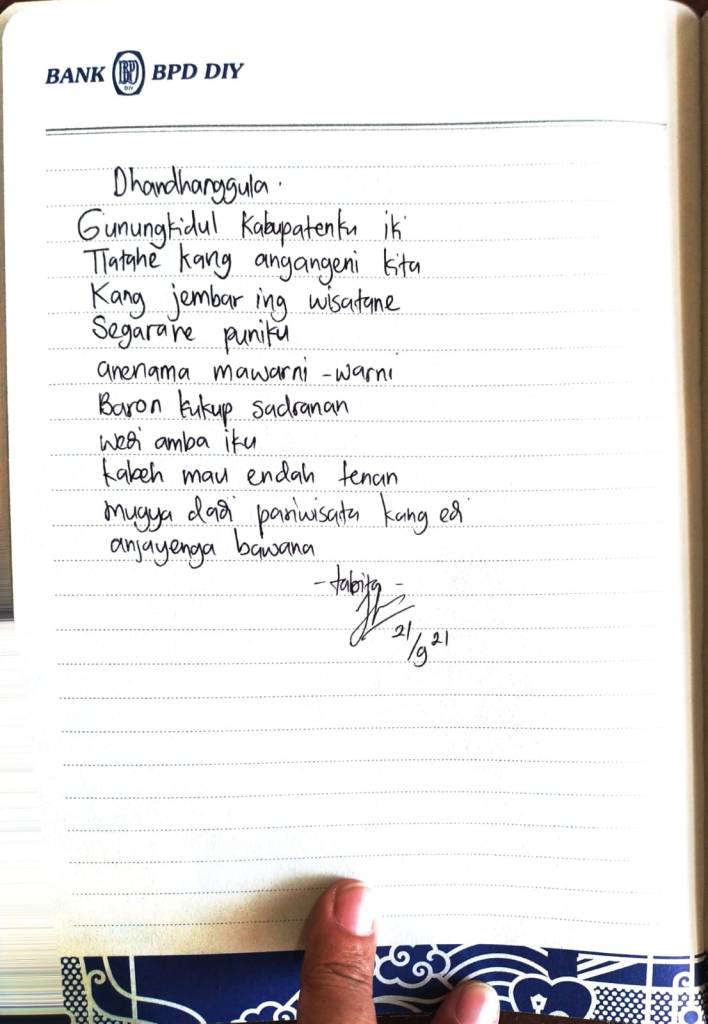 BANK BPD BPD DIY
Dhandhanggula.
Gunungkidul Kabupatenku iki
Tlatahe kang angangeni kita
Kang jembar ing wisatane
Segarane puniku
anenama mawarni-warni
Baron kukup sadranan
wedi amba iku
kabeh mau endah tenan
mugya dadi pariwisata kang edi
anjayenga bawana
-tabita-
21/9 21